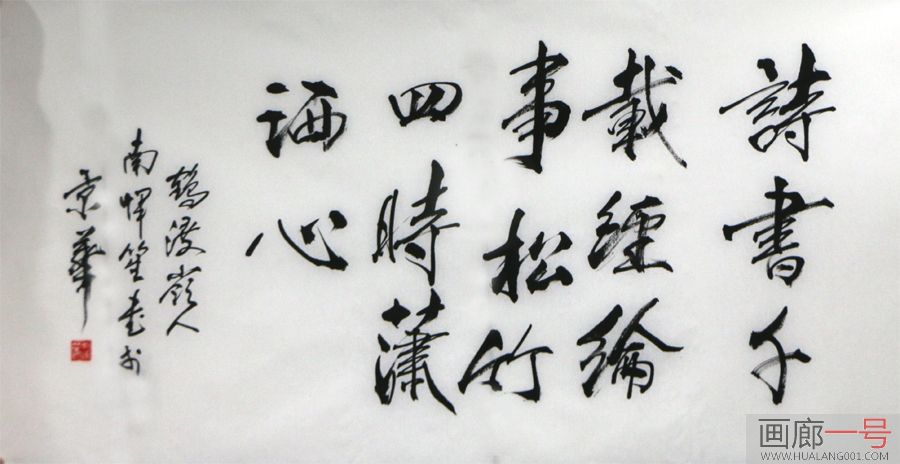 詩書千
載經綸
事松竹
四時蕭
洒心
鶴發嶺人
南恽笙書於
京華
画廊一号
WWW.HUALANG001.COM